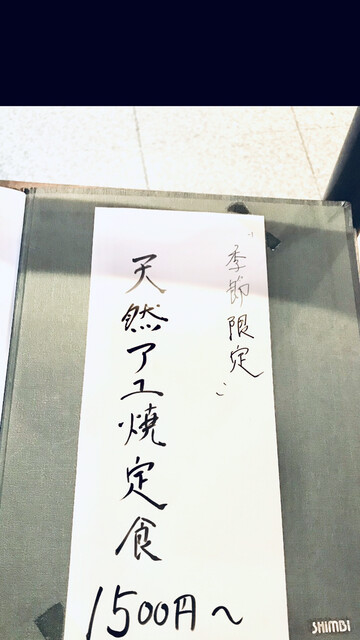 〝季節限定〟
天然アユ焼定食
1500円〜
SHIMBI